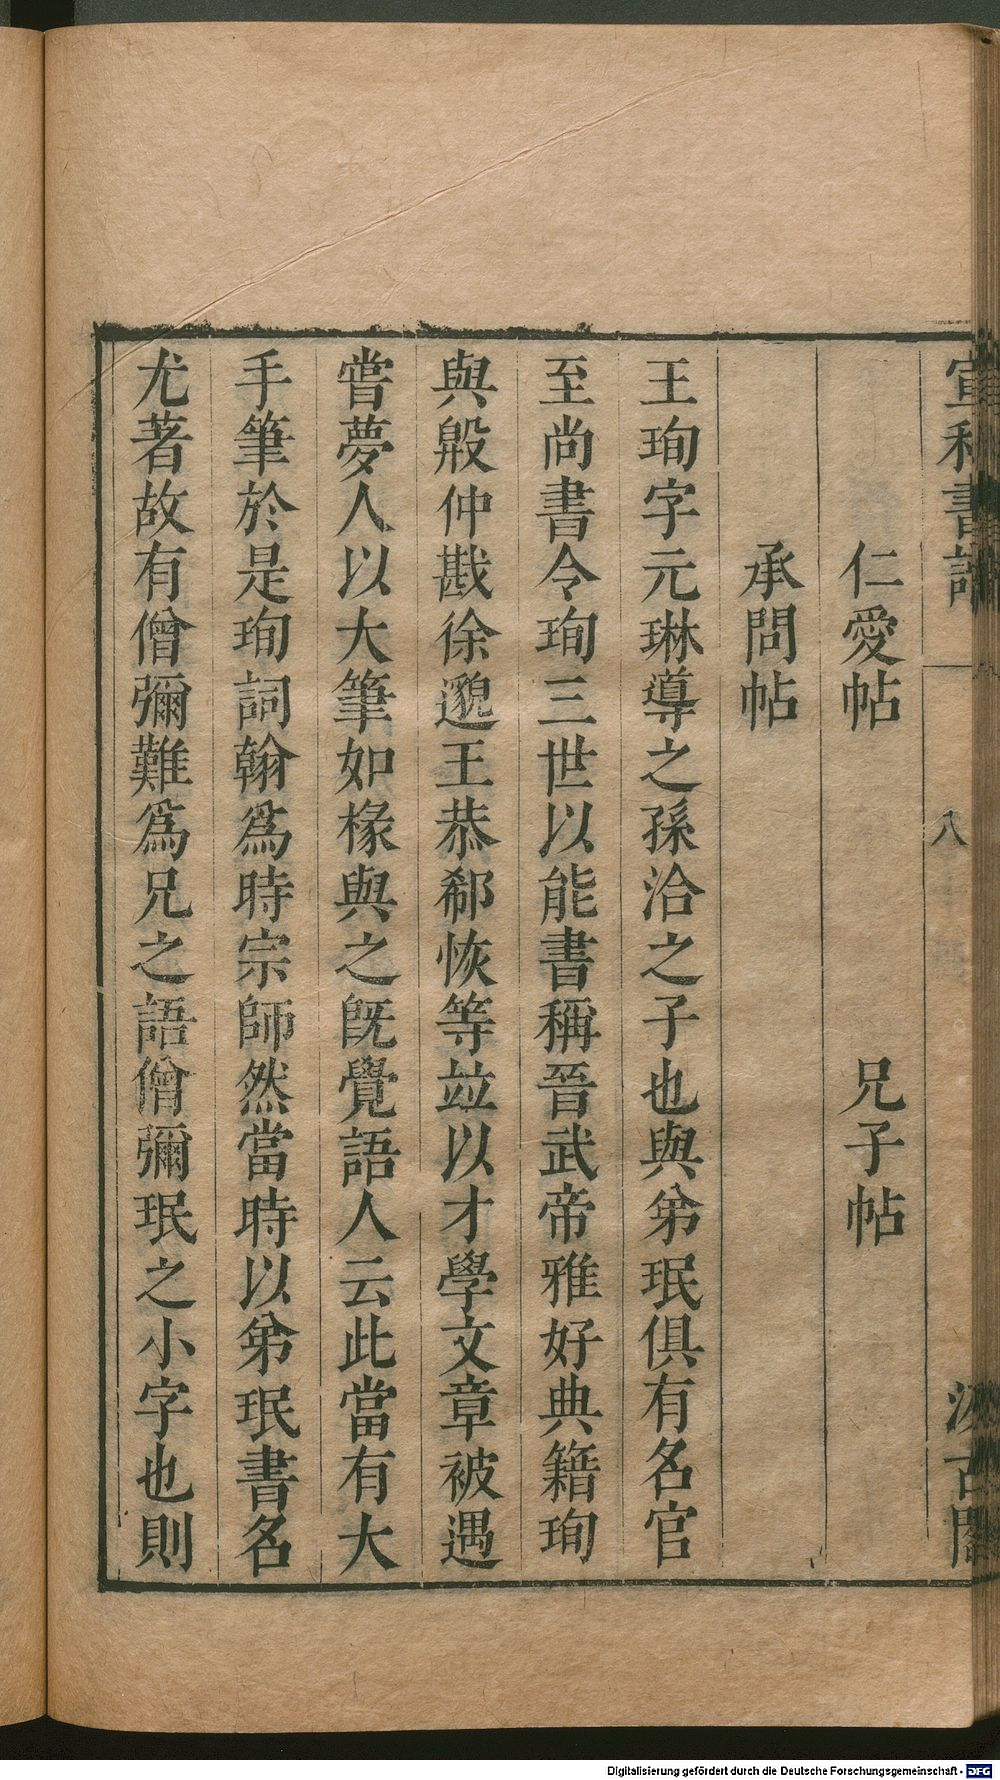 宣和書譜 八 汲古閣
仁愛帖 兄子帖
承問帖
王珣字元琳導之孫洽之子也與弟珉俱有名官
至尚書令珣三世以能書稱晉武帝雅好典籍珣
與殷仲戡徐邈王恭郗恢等竝以才學文章被遇
嘗夢人以大筆如椽與之旣覺語人云此當有大
手筆於是珣詞翰爲時宗師然當時以弟珉書名
尤著故有僧彌難爲兄之語僧彌珉之小字也則
Digitalisierung gefördert durch die Deutsche Forschungsgemeinschaft - DFG